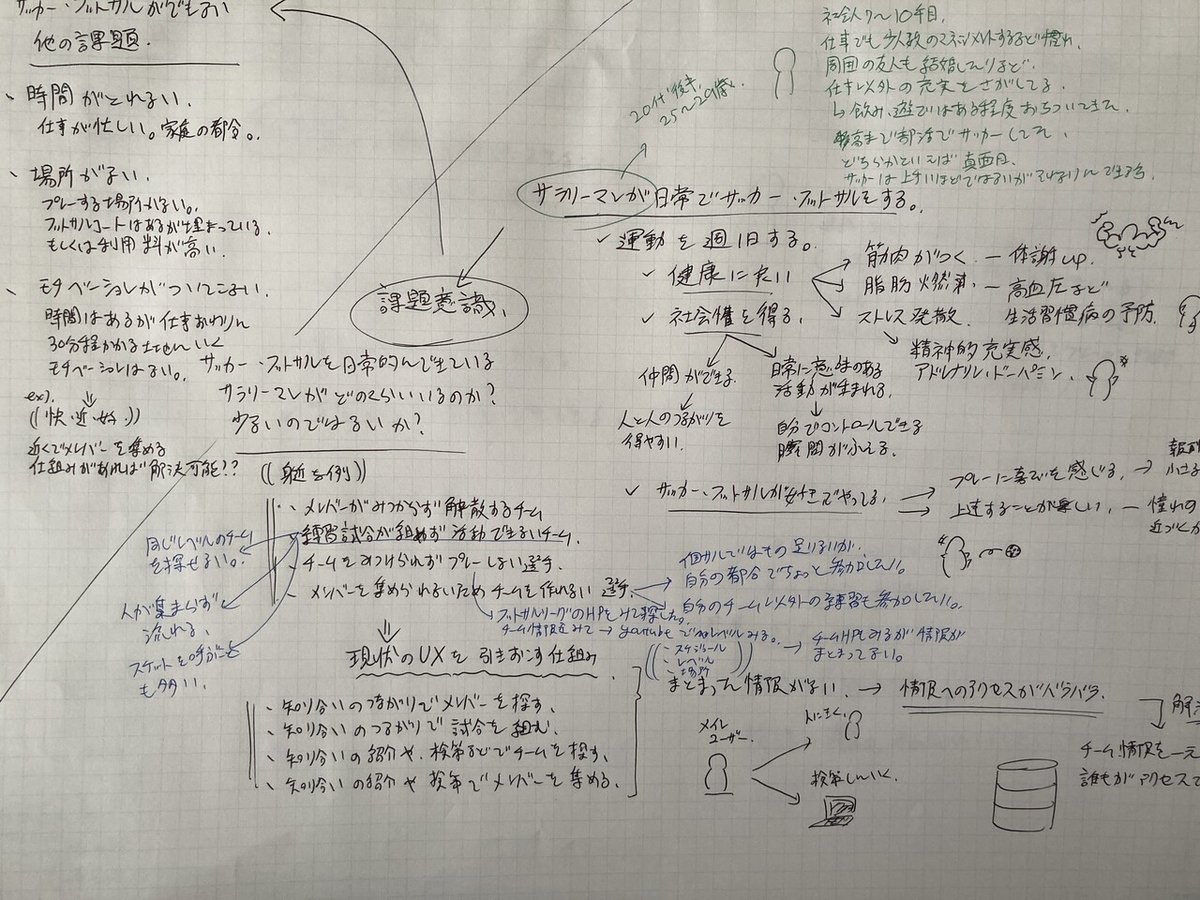 サッカー・フットサルができない
他の課題.
、時間がとれない.
仕事が忙しい。家庭の都合。
、場所がない.
プレーする場所がない。
フットサルコートはあるが埋まっている.
もしくは利用料が高い.
、モチベーションがついてこない.
時間はあるが仕事おわりに
30分程かかる土地にいく
モチベーションはない。
ex).
((快・近・好.))
近くでメンバーを集める
仕組みがあれば解決可能??
課題意識、
サッカー・フットサルを日常的にできている
サラリーマンがどのくらいいるのか?
少ないのではないか?
((身近な例))
、メンバーがみつからず解散するチーム
・練習試合が組めず活動できないチーム.
・チームをみつけられずプレーしない選手.
・メンバーを集められないためチームを作れない選手.
同じレベルのチーム
を探せない。
人が集まらず
流れる、
スケットを呼ぶこと
も多い.
現状のUXを引きおこす仕組み
、知り合いのつながりでメンバーを探す、
、知り合いのつながりで試合を組む.
、知り合いの紹介や、検索などでチームを探す、
、知り合いの紹介や検索でメンバーを集める、
社会人7〜10年目.
仕事でも少人数のマネジメントするなど慣れ.
周囲の友人も結婚したりなど.
仕事以外の充実をさがしてる.
↳飲み、遊びはある程度おちついてきた.
高まで部活でサッカーしてた、
どちらかといえば真面目.
サッカーは上手いほどではないがそれなりにできる.
20代後半.
25〜29歳.
サラリーマンが日常でサッカー・フットサルをする。
✓運動を週1日する。
✓健康にたい
✓社会性を得る、
筋肉がつく - 代謝up.
脂肪燃焼 - 高血圧など
生活習慣病の予防.
ストレス発散.
精神的充実感.
アドレナリン・ドーパミン.
仲間ができる
人と人のつながりを
得やすい.
日常に意味のある
活動が生まれる.
自分でコントロールできる
瞬間がふえる.
✓サッカー・フットサルが好きでやってる.
プレーに喜びを感じる.
小さな
上達することが楽しい. - 憧れの
近づくか
個サルではもの足りないが.
自分の都合でちょっと参加したい。
自分のチーム以外の練習も参加したい。
フットサルリーグのHPをみて探した。
チーム情報をみて→youtubeでレベルみる。
チームHPをみるが情報が
まとまってない。
((・スケジュール
・レベル
・場所))
まとまった情報がない. → 情報へのアクセスがバラバラ.
メイン
ユーザー.
人にきく.
検索しにいく.
チーム情報を一元
誰もがアクセスで